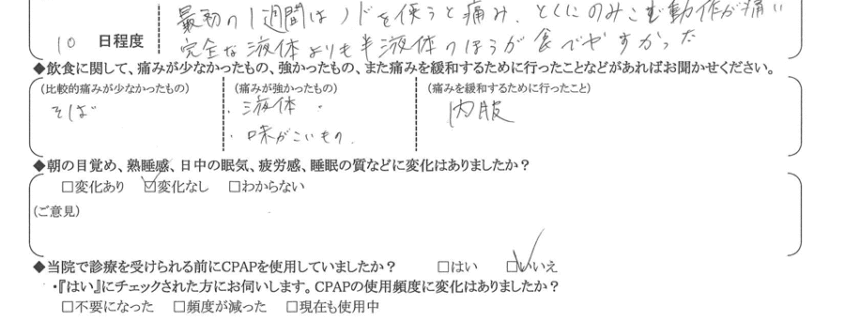 最初の1週間はノドを使うと痛み、とくにのみこむ動作が痛い
10 日程度 完全な液体よりも半液体のほうが食べやすかった
◆飲食に関して、痛みが少なかったもの、強かったもの、また痛みを緩和するために行ったことなどがあればお聞かせください。
(比較的痛みが少なかったもの) (痛みが強かったもの) (痛みを緩和するために行ったこと)
そば ・液体 ・ 内服
・味がこいもの.
◆朝の目覚め、熟睡感、日中の眠気、疲労感、睡眠の質などに変化はありましたか?
□変化あり ☑変化なし □わからない
(ご意見)
◆当院で診療を受けられる前にCPAPを使用していましたか? □はい ☑いいえ
・『はい』にチェックされた方にお伺いします。CPAPの使用頻度に変化はありましたか?
□不要になった □頻度が減った □現在も使用中